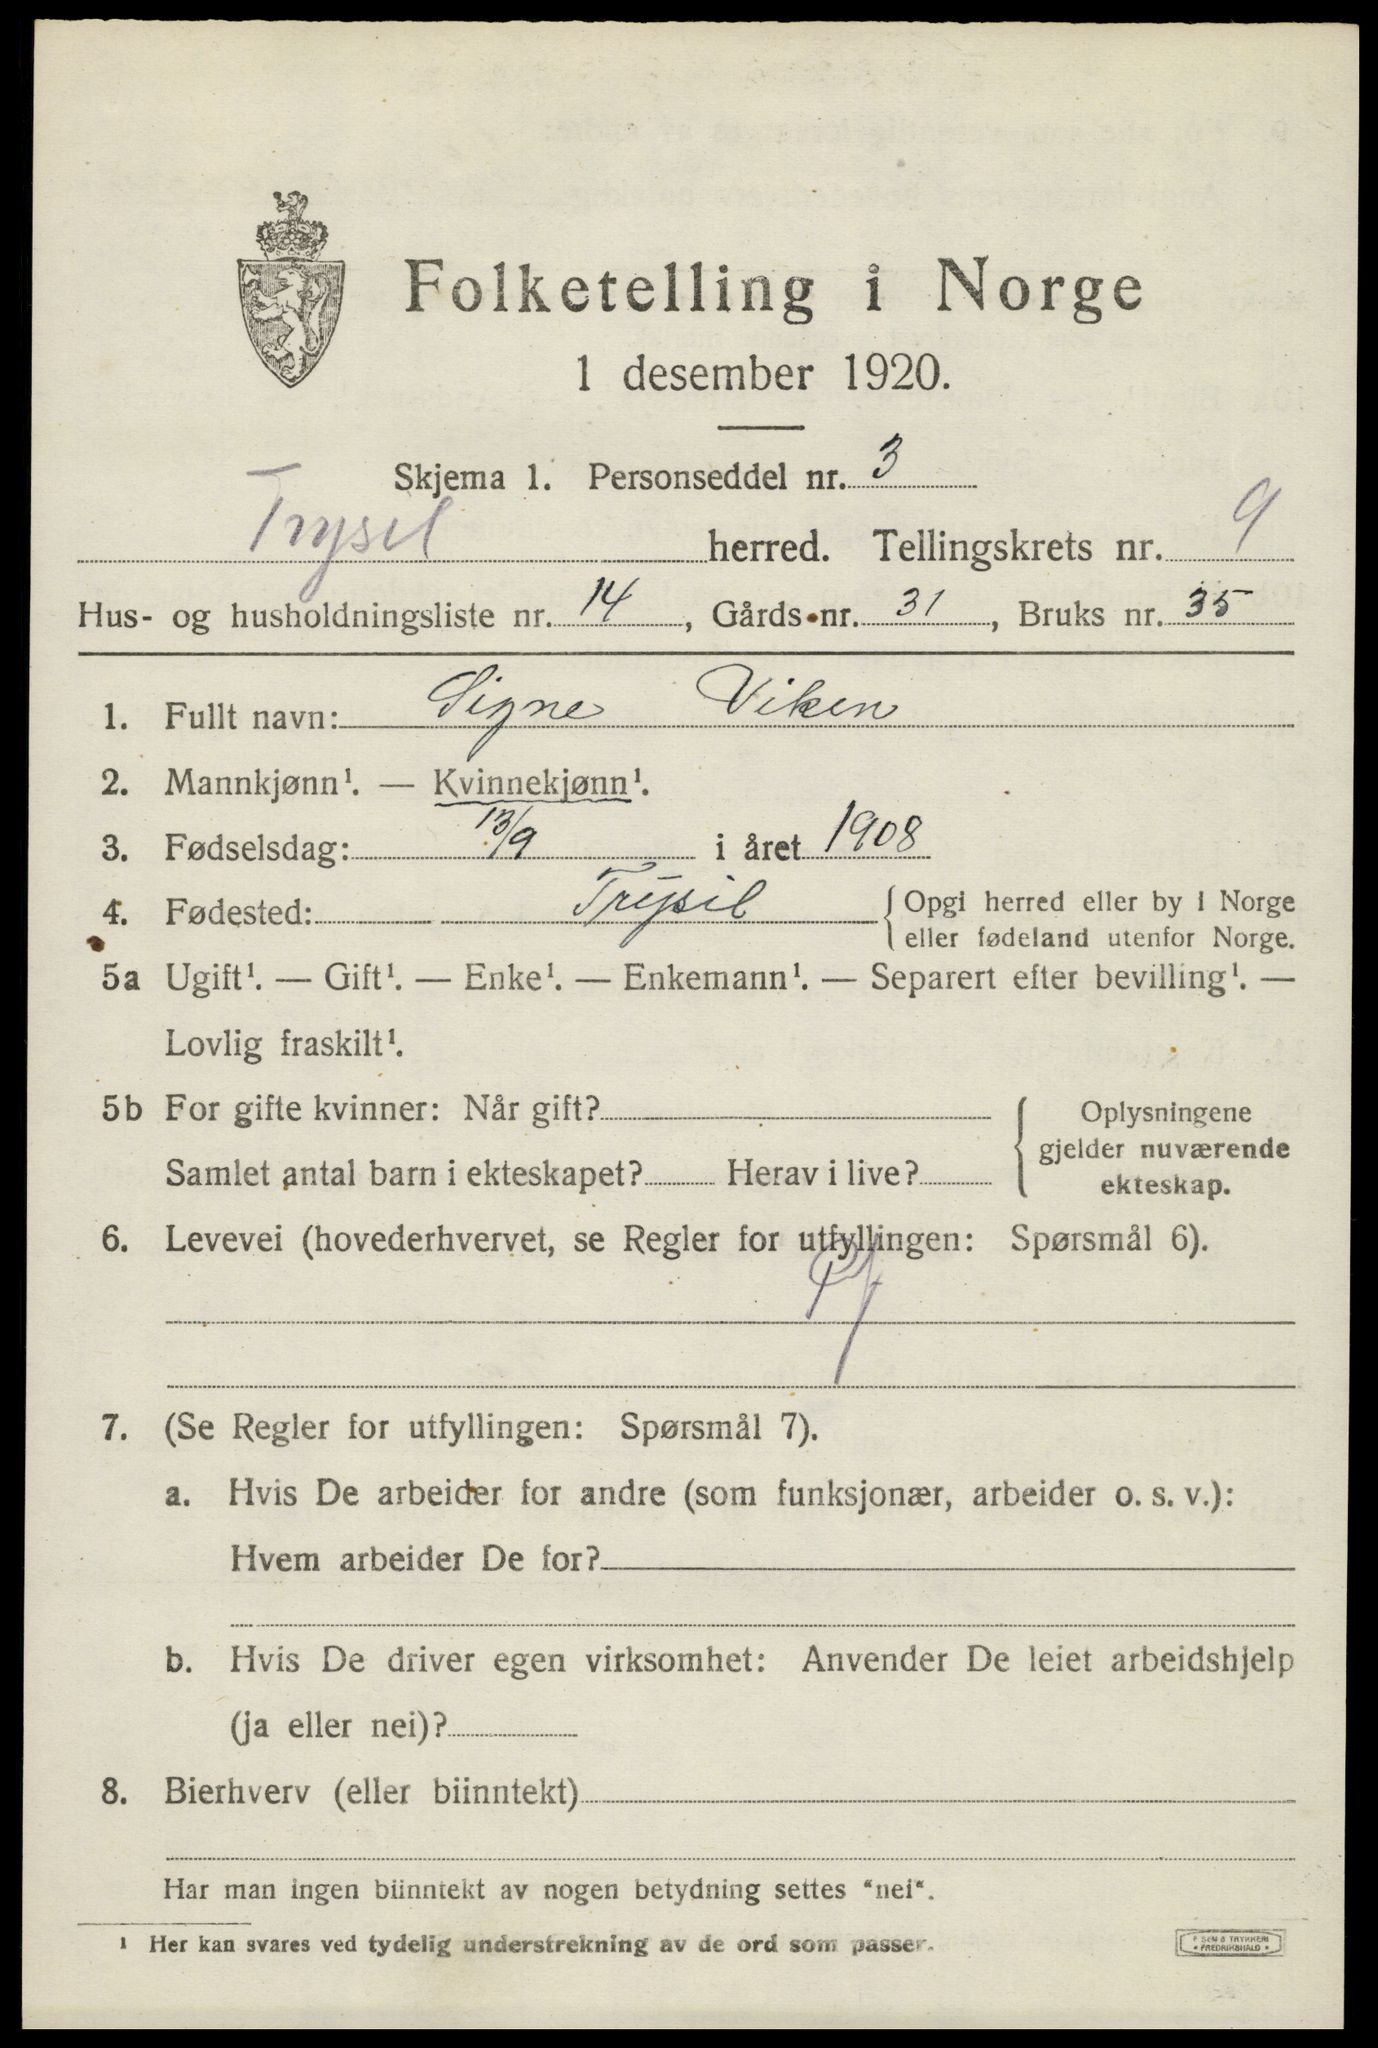 Folketelling i Norge
1 desember 1920.
Skjema 1. Personseddel nr. 3
Trysil herred. Tellingskrets nr. 9
Hus- og husholdningsliste nr. 14, Gårds nr. 31, Bruks nr. 35
1. Fullt navn: Signe Viken
2. Mannkjønn¹. — Kvinnekjønn¹.
3. Fødselsdag: 13/9 i året 1908
4. Fødested: Trysil {Opgi herred eller by i Norge
eller fødeland utenfor Norge.
5a Ugift¹. — Gift¹. — Enke¹. — Enkemann¹. — Separert efter bevilling¹. —
Lovlig fraskilt¹.
5b For gifte kvinner: Når gift?
Samlet antal barn i ekteskapet? Herav i live?
{Oplysningene
gjelder nuværende
ekteskap.
6. Levevei (hovederhvervet, se Regler for utfyllingen: Spørsmål 6).
7. (Se Regler for utfyllingen: Spørsmål 7).
a. Hvis De arbeider for andre (som funksjonær, arbeider o. s. v.):
Hvem arbeider De for?
b. Hvis De driver egen virksomhet: Anvender De leiet arbeidshjelp
(ja eller nei)?
8. Bierhverv (eller biinntekt)
Har man ingen biinntekt av nogen betydning settes "nei".
¹ Her kan svares ved tydelig understrekning av de ord som passer.
TRYKKERI
• FREDRIKSHALD •